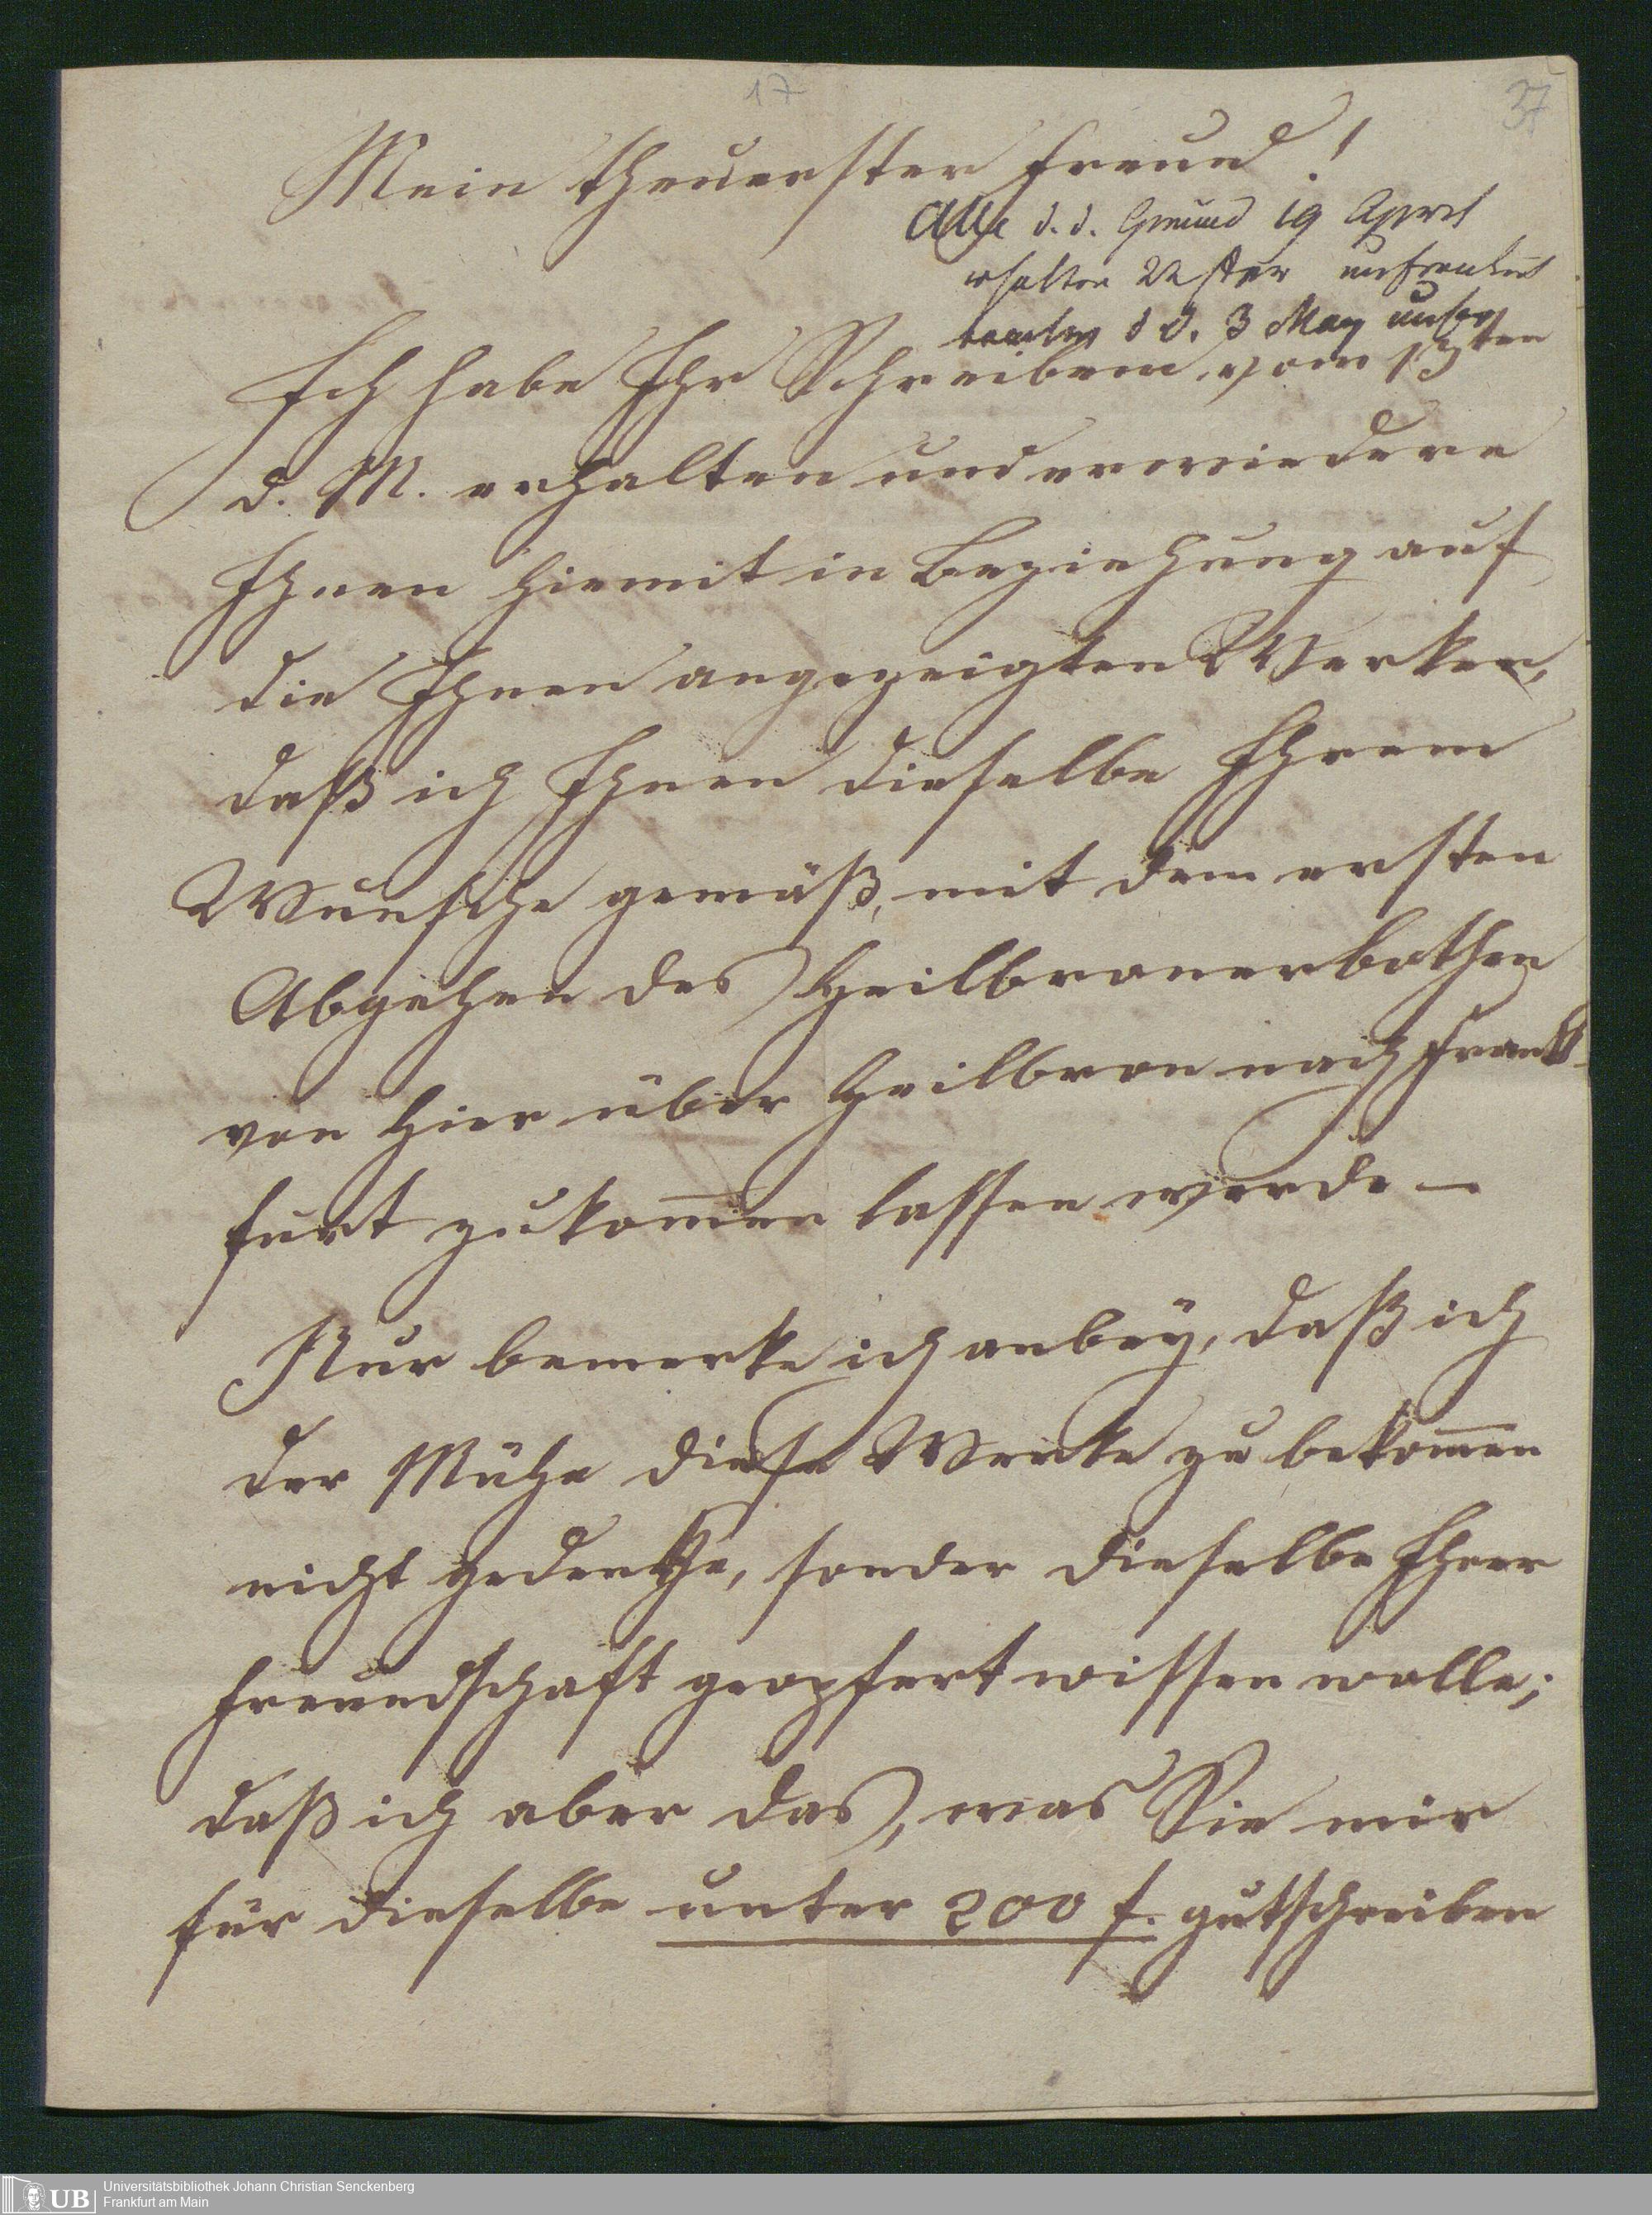 17
37
Mein theuerster Freund!
Alle d. d. Gmund 19 April
erhalten 22 ster
d d. 3 May
Ich habe Ihr Schreiben vom 13ten
d. M. erhalten und erwiedere
Ihnen hiemit in Beziehung auf
die Ihnen angezeigten Werker,
daß ich Ihnen dieselbe Ihrem
Wunsche gemäß, mit dem ersten
Abgehen des Heilbronerbothen
von hier über Heilbron nach Frank-
furt zukom̅en lassen werde —
Nur bemerke ich anbey, daß ich
der Mühe diese Werke zu bekom̅en
nicht gedenke, sonder dieselbe Ihrer
Freundschaft geopfert wissen wolle;
daß ich aber das, was Sie mir
für dieselbe unter 200 f. gutschreiben
UB
Universitätsbibliothek Johann Christian Senckenberg
Frankfurt am Main